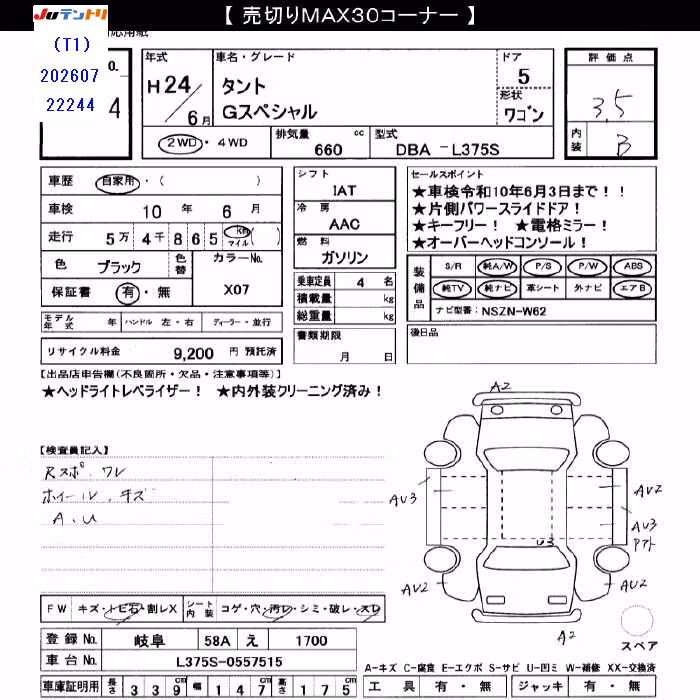 【 売切りMAX30コーナー 】
JUテントリ
(T1)
応用紙
202607
22244
0.
4
年式
H24/6月
車名・グレード
タント
Gスペシャル
ドア
5
形状
ワゴン
評価点
3.5
内装
B
2WD・4WD
排気量 660 cc
型式 DBA-L375S
車歴 自家用・( )
車検 10年 6月
走行 5万4千865 Km マイル ( )
色 ブラック 色替 カラーNo.
保証書 有・無 X07
シフト
IAT
冷房
AAC
燃料
ガソリン
乗車定員 4 名
積載量 kg
総重量 kg
セールスポイント
★車検令和10年6月3日まで!!
★片側パワースライドドア!
★キーフリー! ★電格ミラー!
★オーバーヘッドコンソール!
装備品
S/R 純A/W P/S P/W ABS
純TV 純ナビ 革シート 外ナビ エアB
ナビ型番: NSZN-W62
モデル年式 年 ハンドル 左・右 ディーラー・並行
書類期限
月 日
後日品
リサイクル料金 9,200 円 預託済
【出品店申告欄(不良箇所・欠品・注意事項等)】
★ヘッドライトレベライザー! ★内外装クリーニング済み!
【検査員記入】
Rスポ ワレ
ホイール、キズ
A.U
A2
AU3
AU2
AU3
アト
U3
AU2
AU2
A2
スペア
FW キズ・トビ石・割レX シート内装 コゲ・穴・汚レ・シミ・破レ・スレ
登録No. 岐阜 58A え 1700
車台No. L375S-0557515
車庫証明用 長さ 339cm 幅 147cm 高さ 175cm
A-キズ C-腐食 E-エクボ S-サビ U-凹ミ W-補修 XX-交換済
工具 有・無 ジャッキ 有・無